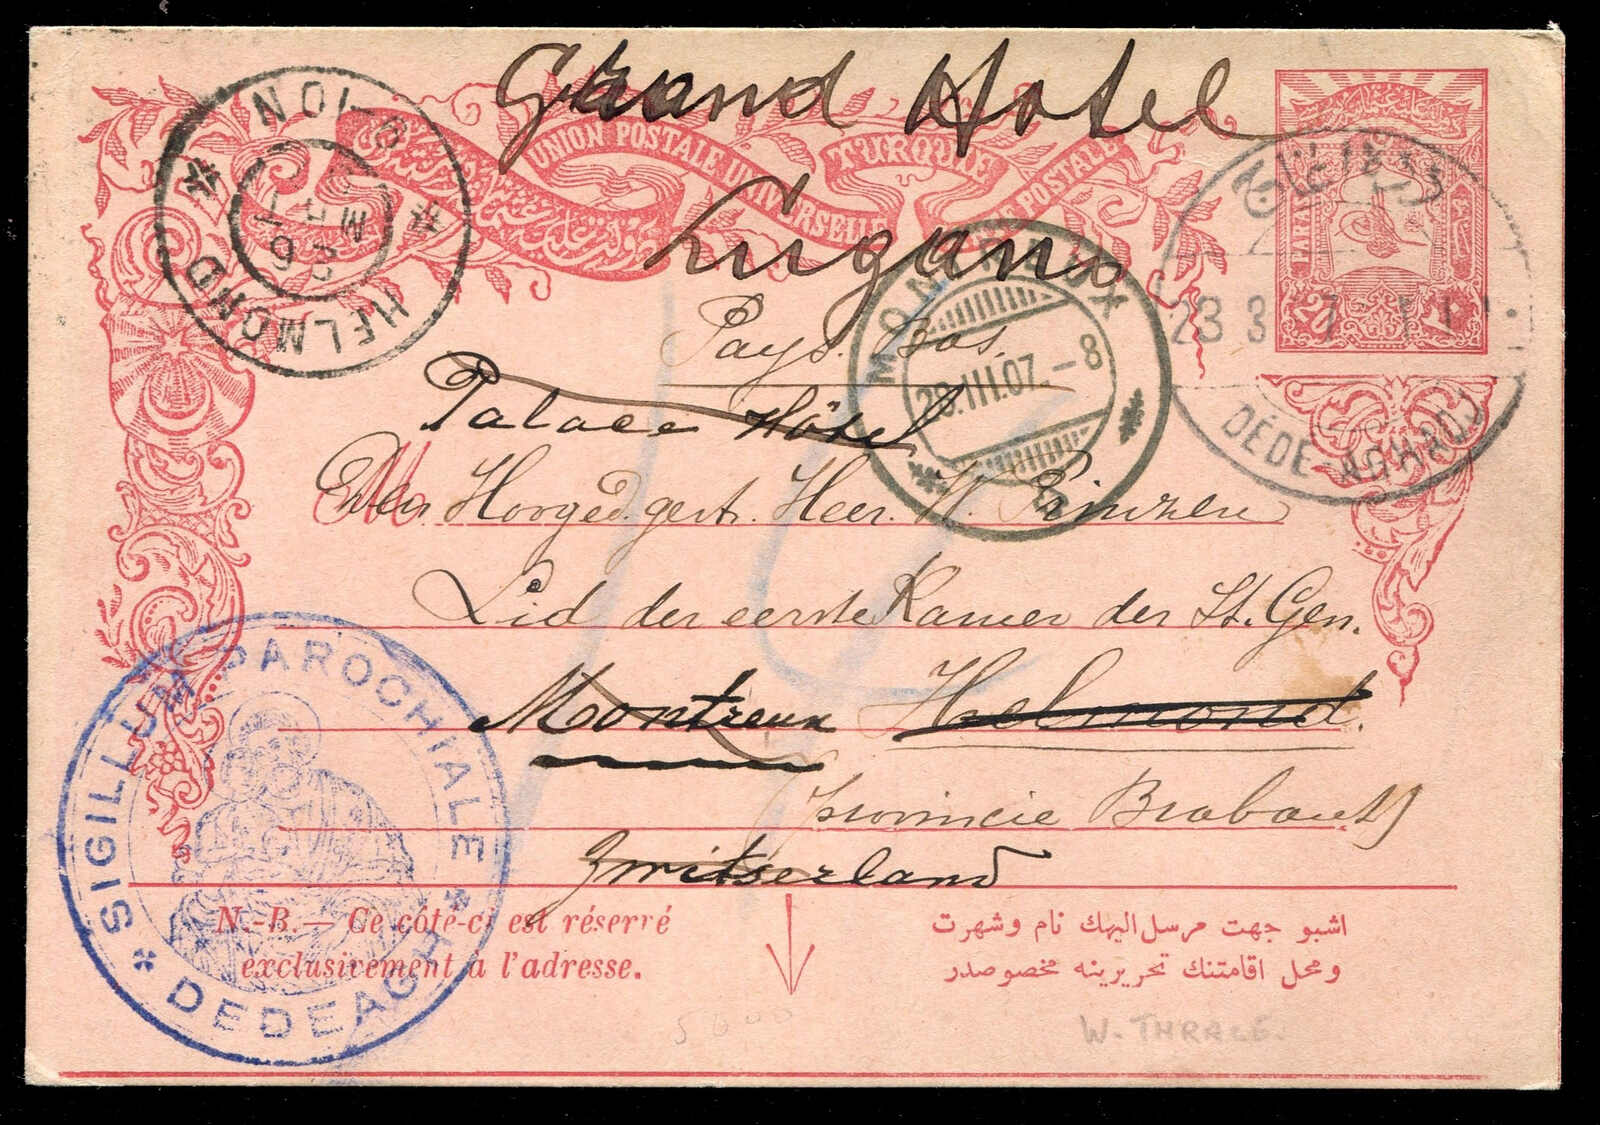 Grand Hotel
Lugano
UNION POSTALE UNIVERSELLE
TURQUIE
POSTALE
Pays. Bas.
Palace Hôtel
Den Hooged. gestr. Heer. W. Prinzen
Lid der eerste Kamer der St. Gen.
Montreux Helmond.
Provincie Brabant
Zwitserland
HELMOND
MONTREUX
28.III.07.-8
20
23 3
DÉDÉ-AGHADJ
SIGILLUM PAROCHIALE
DEDEAGH
N.-B.— Ce côté-ci est réservé
exclusivement a l'adresse.
اشبو جهت مرسل اليهك نام و شهرت
و محل اقامتنك تحريرينه مخصوصدر
5000
W. THRACE.